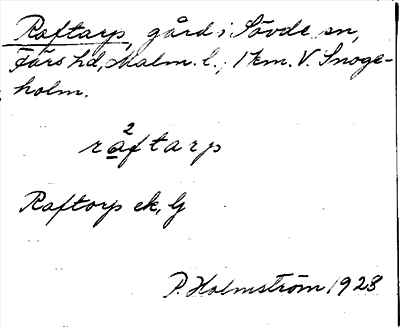 Raftarp, gård i Sövde sn,
Färs hd, Malm. l., 1 km. V. Snoge-
holm.
ra²ftarp
Raftorp ek, G
P. Holmström 1928